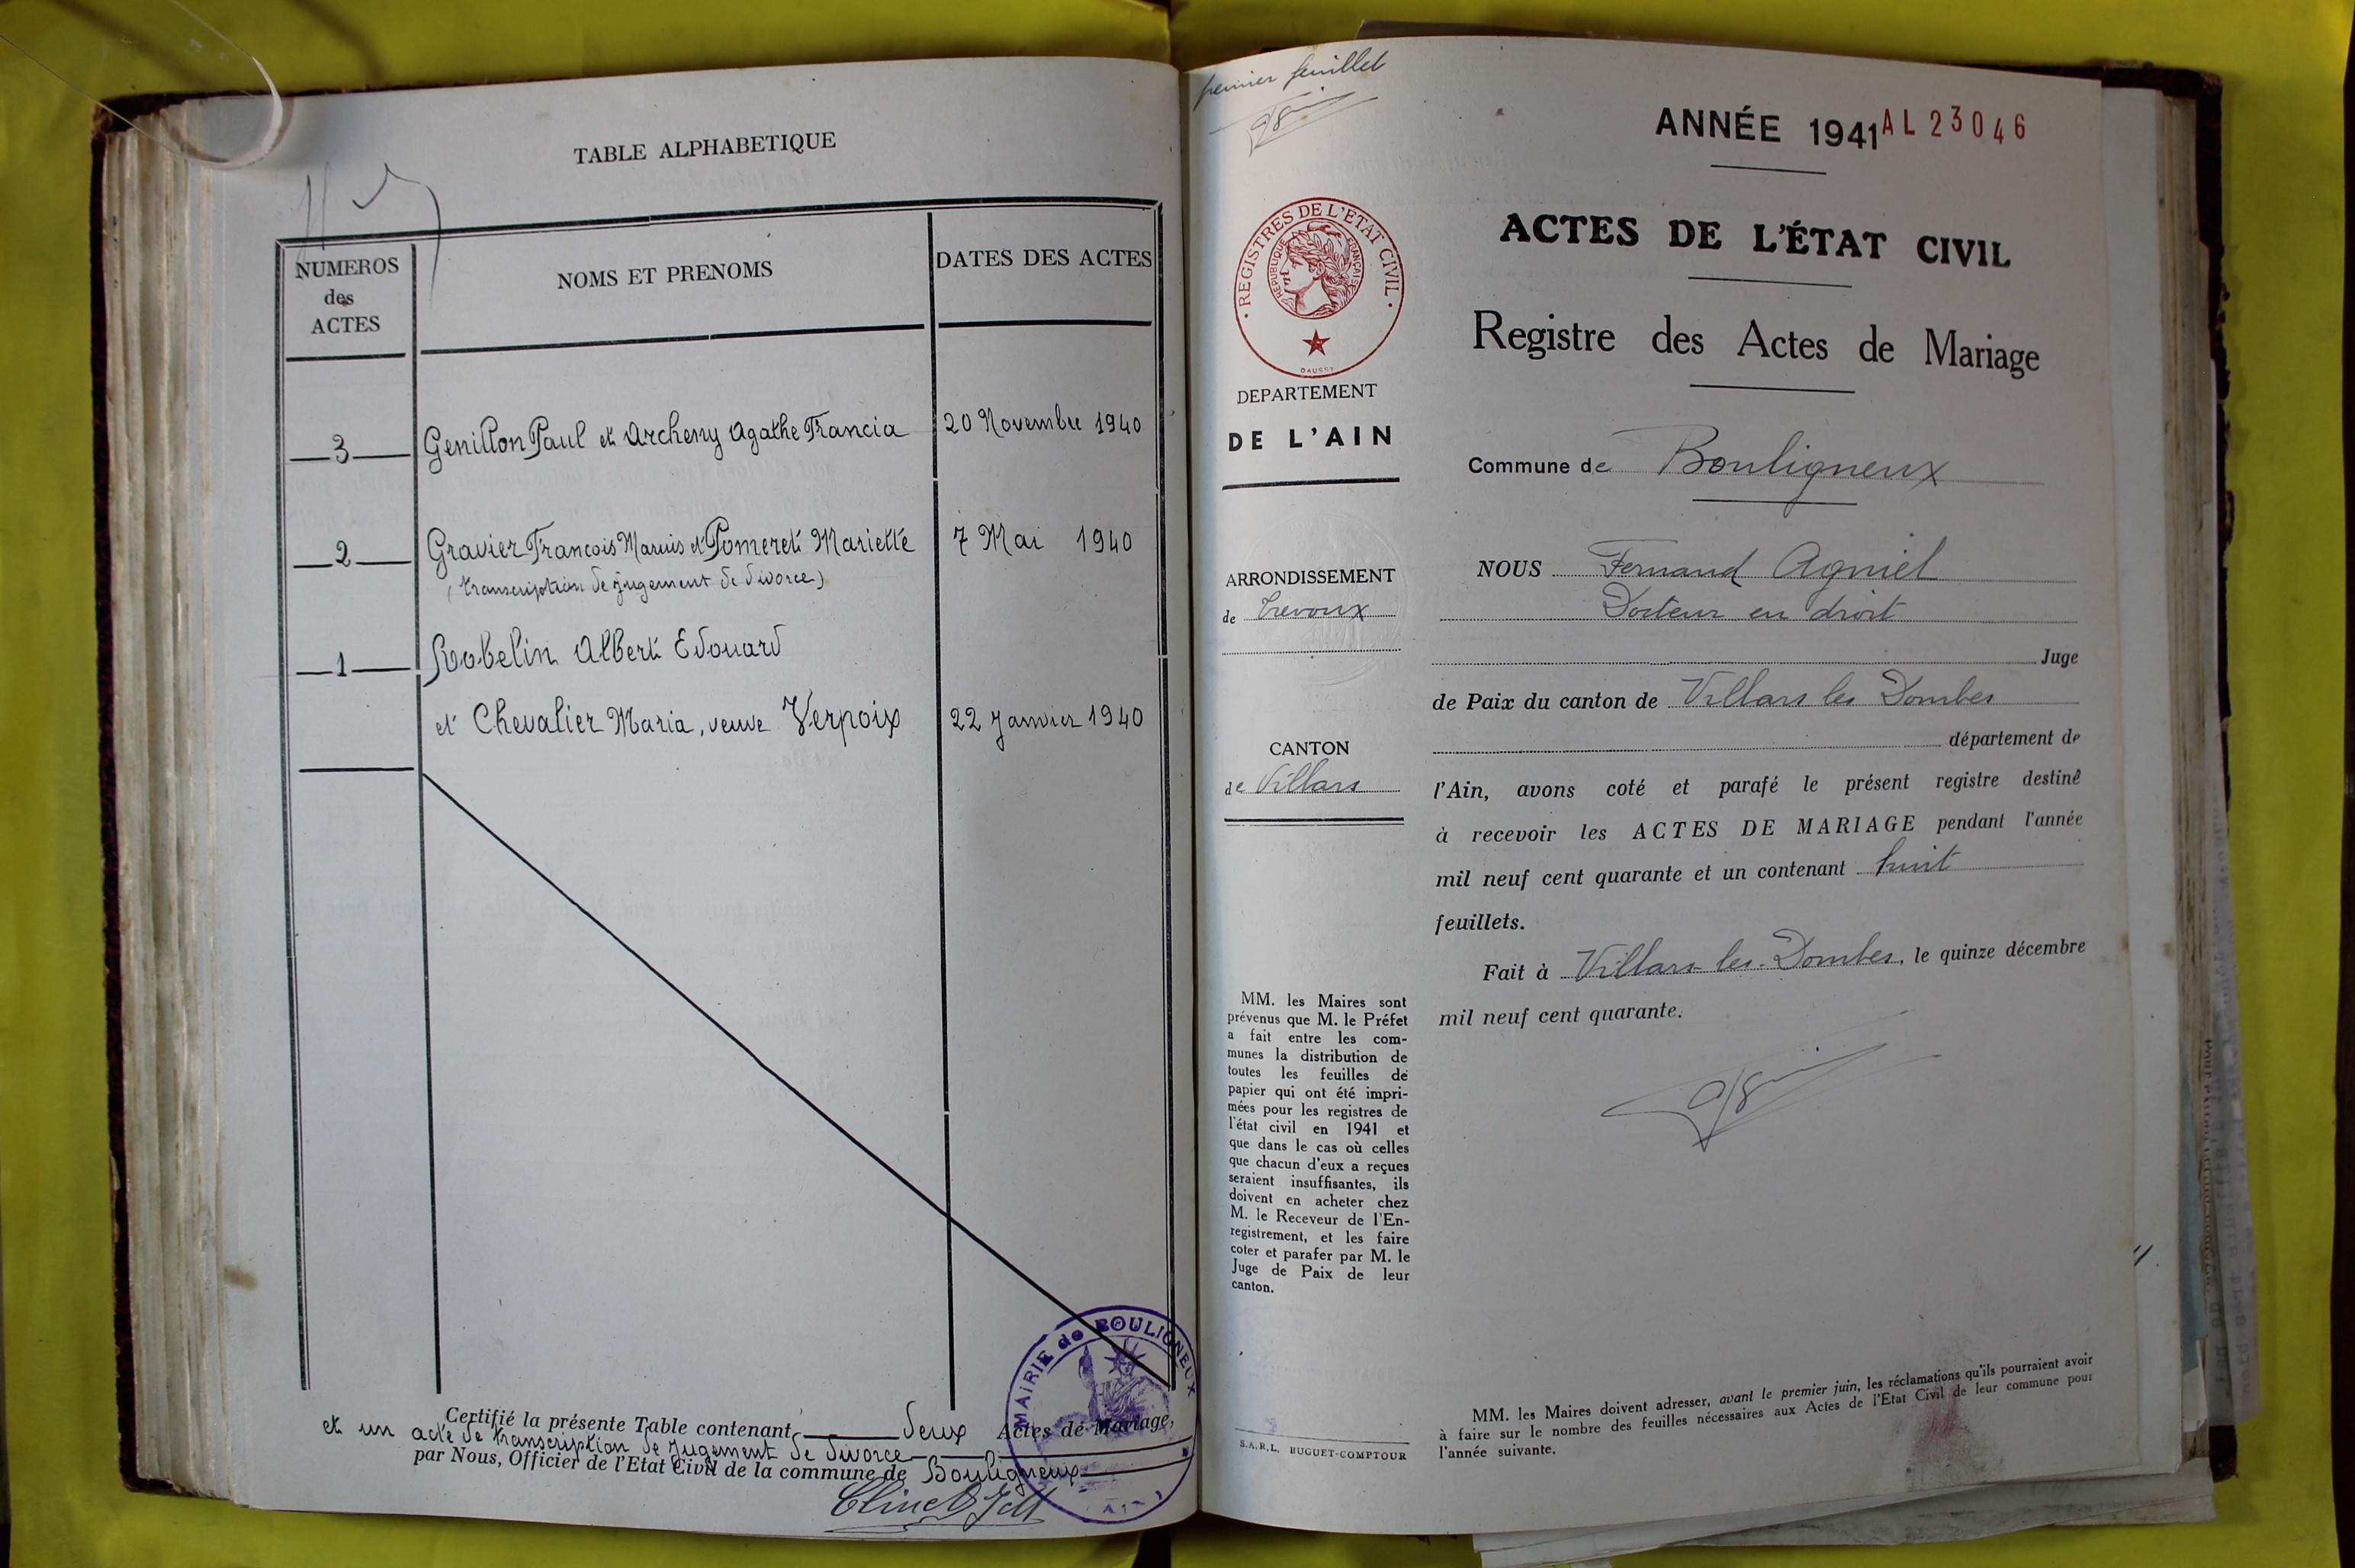 TABLE ALPHABETIQUE
NUMEROS
des
ACTES
NOMS ET PRENOMS
DATES DES ACTES
3 Genillon Paul et Archeny Agathe Francia 20 Novembre 1940
2 Gravier Francois Marius et Pomeret Mariette 7 Mai 1940
(transcription de jugement de divorce)
1 Robelin Albert Edouard
et Chevalier Maria, veuve Verpoix 22 Janvier 1940
Certifié la présente Table contenant deux Actes de Mariage,
et un acte de transcription de jugement de divorce
par Nous, Officier de l'Etat Civil de la commune de Bouligneux
MAIRIE de BOULIGNEUX
(Ain)
premier feuillet
ANNÉE 1941 AL 23046
REGISTRES DE L'ETAT CIVIL
REPUBLIQUE FRANÇAISE
DAUSSY
DEPARTEMENT
DE L'AIN
ARRONDISSEMENT
de Trevoux
CANTON
de Villars
MM. les Maires sont
prévenus que M. le Préfet
a fait entre les com-
munes la distribution de
toutes les feuilles de
papier qui ont été impri-
mées pour les registres de
l'état civil en 1941 et
que dans le cas où celles
que chacun d'eux a reçues
seraient insuffisantes, ils
doivent en acheter chez
M. le Receveur de l'En-
registrement, et les faire
coter et parafer par M. le
Juge de Paix de leur
canton.
S.A.R.L. HUGUET-COMPTOUR
ACTES DE L'ÉTAT CIVIL
Registre des Actes de Mariage
Commune de Bouligneux
NOUS Fernand Agniel
Docteur en droit
Juge
de Paix du canton de Villars les Dombes
département de
l'Ain, avons coté et parafé le présent registre destiné
à recevoir les ACTES DE MARIAGE pendant l'année
mil neuf cent quarante et un contenant huit
feuillets.
Fait à Villars-les-Dombes, le quinze décembre
mil neuf cent quarante.
MM. les Maires doivent adresser, avant le premier juin, les réclamations qu'ils pourraient avoir
à faire sur le nombre des feuilles nécessaires aux Actes de l'Etat Civil de leur commune pour
l'année suivante.